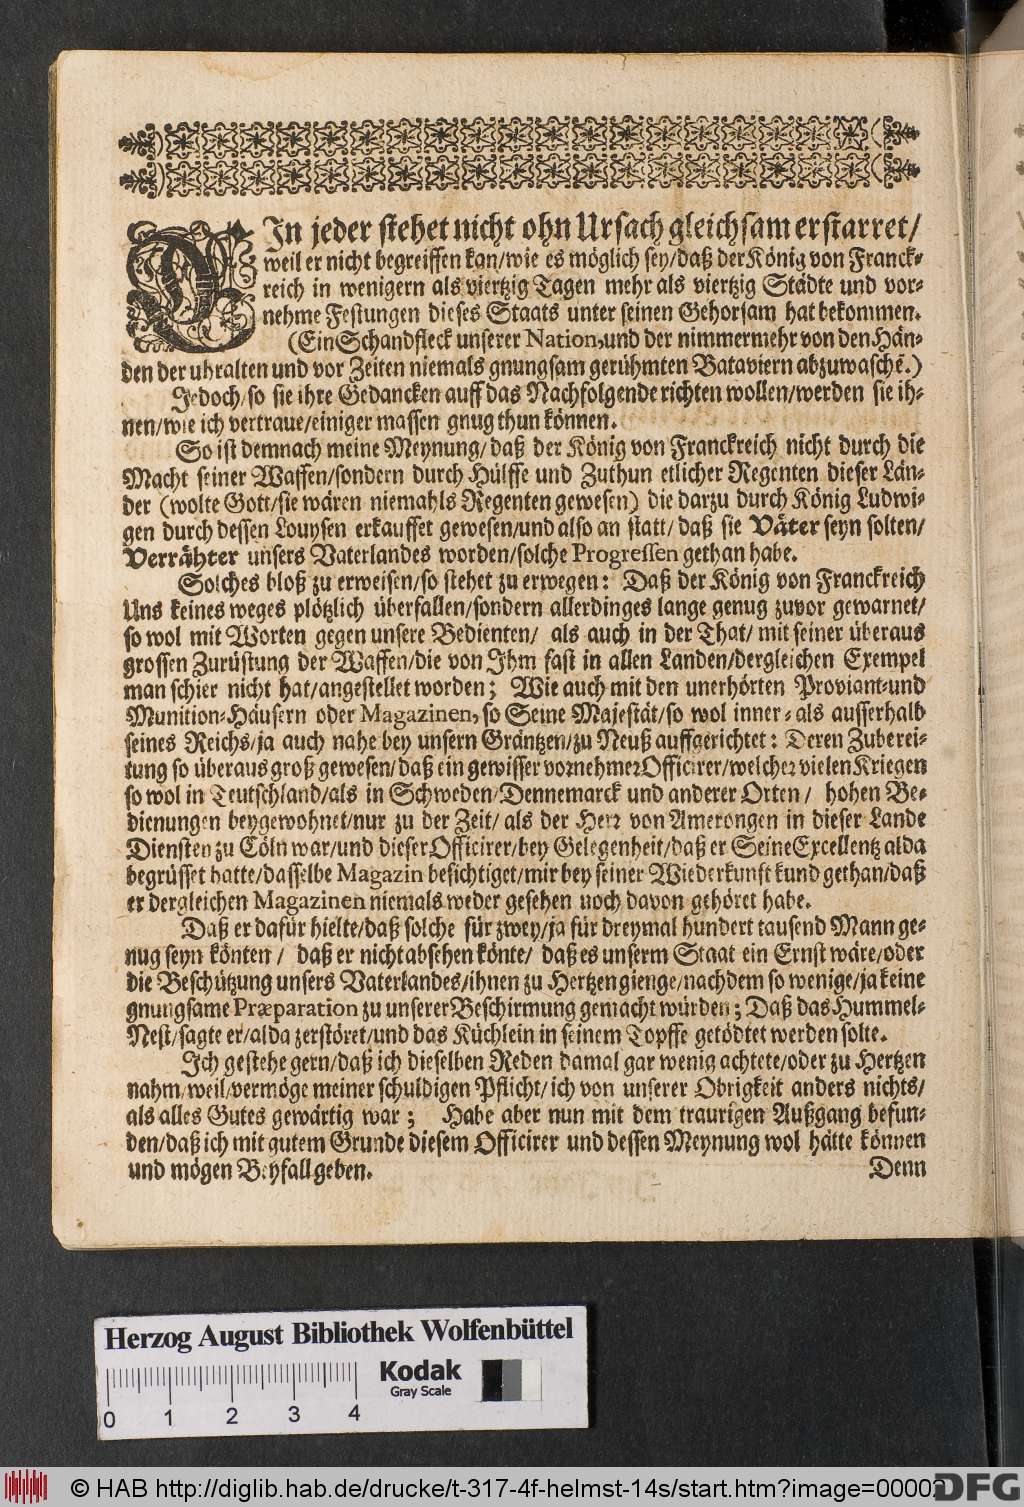 EIn jeder stehet nicht ohn Ursach gleichsam erstarret/
weil er nicht begreiffen kan/wie es möglich sey/daß der König von Franck-
reich in wenigern als viertzig Tagen mehr als viertzig Städte und vor-
nehme Festungen dieses Staats unter seinen Gehorsam hat bekommen.
(Ein Schandfleck unserer Nation, und der nimmermehr von den Hän-
den der uhralten und vor Zeiten niemals gnungsam gerühmten Bataviern abzuwaschē.)
Jedoch/so sie ihre Gedancken auff das Nachfolgende richten wollen/werden sie ih-
nen/wie ich vertraue/einiger massen gnug thun können.
So ist demnach meine Meynung/daß der König von Franckreich nicht durch die
Macht seiner Waffen/sondern durch Hülffe und Zuthun etlicher Regenten dieser Län-
der (wolte Gott/sie wären niemahls Regenten gewesen) die darzu durch König Ludwi-
gen durch dessen Louysen erkauffet gewesen/und also an statt/daß sie Väter seyn solten/
Verrähter unsers Vaterlandes worden/solche Progressen gethan habe.
Solches bloß zu erweisen/so stehet zu erwegen: Daß der König von Franckreich
Uns keines weges plötzlich überfallen/sondern allerdinges lange genug zuvor gewarnet/
so wol mit Worten gegen unsere Bedienten/ als auch in der That/mit seiner überaus
grossen Zurüstung der Waffen/die von Ihm fast in allen Landen/dergleichen Exempel
man schier nicht hat/angestellet worden; Wie auch mit den unerhörten Proviant-und
Munition-Häusern oder Magazinen, so Seine Majestät/so wol inner-als ausserhalb
seines Reichs/ja auch nahe bey unsern Gräntzen/zu Neuß auffgerichtet: Deren Zuberei-
tung so überaus groß gewesen/daß ein gewisser vornehmer Officirer/welcher vielen Kriegen
so wol in Teutschland/als in Schweden/Dennemarck und anderer Orten/ hohen Be-
dienungen beygewohnet/nur zu der Zeit/als der Herr von Amerongen in dieser Lande
Diensten zu Cöln war/und dieser Officirer/bey Gelegenheit/daß er Seine Excellentz alda
begrüsset hatte/dasselbe Magazin besichtiget/mir bey seiner Wiederkunft kund gethan/daß
er dergleichen Magazinen niemals weder gesehen noch davon gehöret habe.
Daß er dafür hielte/daß solche für zwey/ja für dreymal hundert tausend Mann ge-
nug seyn könten/ daß er nicht absehen könte/ daß es unserm Staat ein Ernst wäre/oder
die Beschützung unsers Vaterlandes/ihnen zu Hertzen gienge/nachdem so wenige/ja keine
gnungsame Præparation zu unserer Beschirmung gemacht würden; Daß das Hummel-
Nest/sagte er/alda zerstöret/und das Küchlein in seinem Topffe getödtet werden solte.
Ich gestehe gern/daß ich dieselben Reden damal gar wenig achtete/oder zu Hertzen
nahm/weil/vermöge meiner schuldigen Pflicht/ich von unserer Obrigkeit anders nichts/
als alles Gutes gewärtig war; Habe aber nun mit dem traurigen Außgang befun-
den/daß ich mit gutem Grunde diesem Officirer und dessen Meynung wol hätte können
und mögen Beyfall geben.
Denn
Herzog August Bibliothek Wolfenbüttel
Kodak
Gray Scale
0 1 2 3 4
© HAB http://diglib.hab.de/drucke/t-317-4f-helmst-14s/start.htm?image=00002
DFG